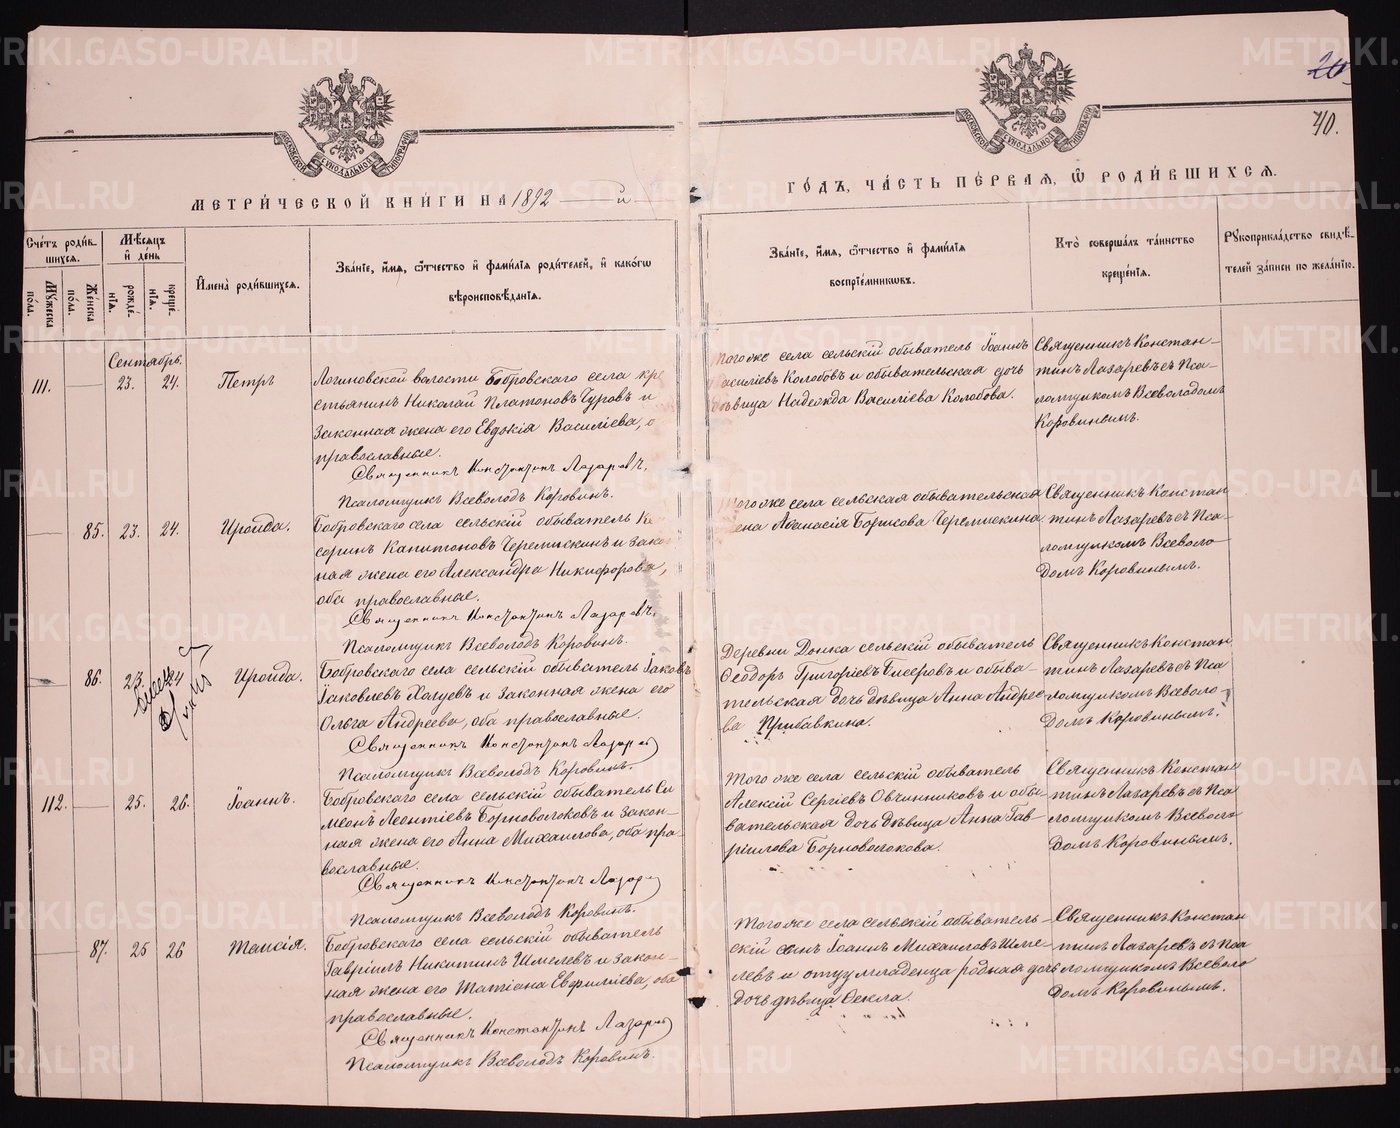 METRIKI.GASO-URAL.RU
20
40.
МОСКОВСКОЙ СѴНОДАЛЬНОЙ ТИПОГРАФІИ
МОСКОВСКОЙ СѴНОДАЛЬНОЙ ТИПОГРАФІИ
МЕТРИ́ЧЕСКОЙ КНИ́ГИ НА 1892 й
ГО́ДЪ, ЧА́СТЬ ПЕ́РВАЯ, Ѡ РОДИ́ВШИХСЯ.
Сче́тъ роди́в-
шихся.
Мꙋ́жеска по́ла.
Же́нска по́ла.
Мѣ́сяцъ
и҆ де́нь
рожде́-
нїѧ.
креще́-
нїѧ.
И҆мена̀ роди́вшихся.
Зва́нїе, и҆́мя, ѻ҆́тчество и҆ фами́лїя роди́телей, и҆ како́гѡ
вѣроисповѣ́данїя.
Зва́нїе, и҆́мя, ѻ҆́тчество и҆ фами́лїя
воспрїе́мниковъ.
Кто̀ соверша́лъ та́инство
креще́нїя.
Рꙋкоприкла́дство свидѣ́-
телей за́писи по жела́нїю.
Сентябрь.
111.
23.
24.
Петръ
Логиновской волости Бобровскаго села кре
стьянинъ Николай Платоновъ Чуровъ и
законная жена его Евдокія Василіева, о
православные.
Священникъ Константинъ Лазаревъ.
Псаломщикъ Всеволодъ Коровинъ.
Того же села сельскій обыватель Іоаннъ
Василіевъ Колобовъ и обывательская дочь
дѣвица Надежда Василіева Колобова.
Священникъ Констан-
тинъ Лазаревъ съ Пса-
ломщикомъ Всеволодомъ
Коровинымъ.
85.
23.
24.
Ироида.
Бобровскаго села сельскій обыватель Ке
соринъ Капитоновъ Черемискинъ и зако
ная жена его Александра Никифорова,
оба православные.
Священникъ Константинъ Лазаревъ.
Псаломщикъ Всеволодъ Коровинъ.
Того же села сельская обывательская
жена Аѳанасія Борисова Черемискина.
Священникъ Констан
тинъ Лазаревъ съ Пса-
ломщикомъ Всеволо
домъ Коровинымъ.
86.
23.
24
Ироида.
Бобровскаго села сельскій обыватель Іаковъ
Іаковлевъ Халуевъ и законная жена его
Ольга Андреева, оба православные.
Священникъ Константинъ Лазарев
Псаломщикъ Всеволодъ Коровинъ.
Деревни Донка сельскій обыватель
Ѳеодоръ Григоріевъ и обыва-
тельская дочь дѣвица Анна Андрее
ва Прибавкина.
Священникъ Констан
тинъ Лазаревъ съ Пса
ломщикомъ Всеволо-
домъ Коровинымъ.
112.
25.
26.
Іоаннъ.
Бобровскаго села сельскій обыватель Си
меонъ Леонтіевъ Борноволоковъ и закон-
ная жена его Анна Михаилова, оба пра-
вославные.
Священникъ Константинъ Лазарев
Псаломщикъ Всеволодъ Коровинъ.
Того же села сельскій обыватель
Алексій Сергіевъ Овчинниковъ и обы-
вательская дочь дѣвица Анна Гав-
ріилова Борноволокова.
Священникъ Констан
тинъ Лазаревъ съ Пса
ломщикомъ Всеволо
домъ Коровинымъ.
87.
25
26
Таисія.
Бобровскаго села сельскій обыватель
Гавріилъ Никитинъ Шмелевъ и закон-
ная жена его Татіана Евфиміева, оба
православные.
Священникъ Константинъ Лазарев
Псаломщикъ Всеволодъ Коровинъ.
Того же села сельскій обыватель-
скій сынъ Іоаннъ Михаиловъ Шме-
левъ и отцу младенца родная дочь
дочь дѣвица Ѳекла.
Священникъ Констан
тинъ Лазаревъ съ Пса
ломщикомъ Всеволо
домъ Коровинымъ.